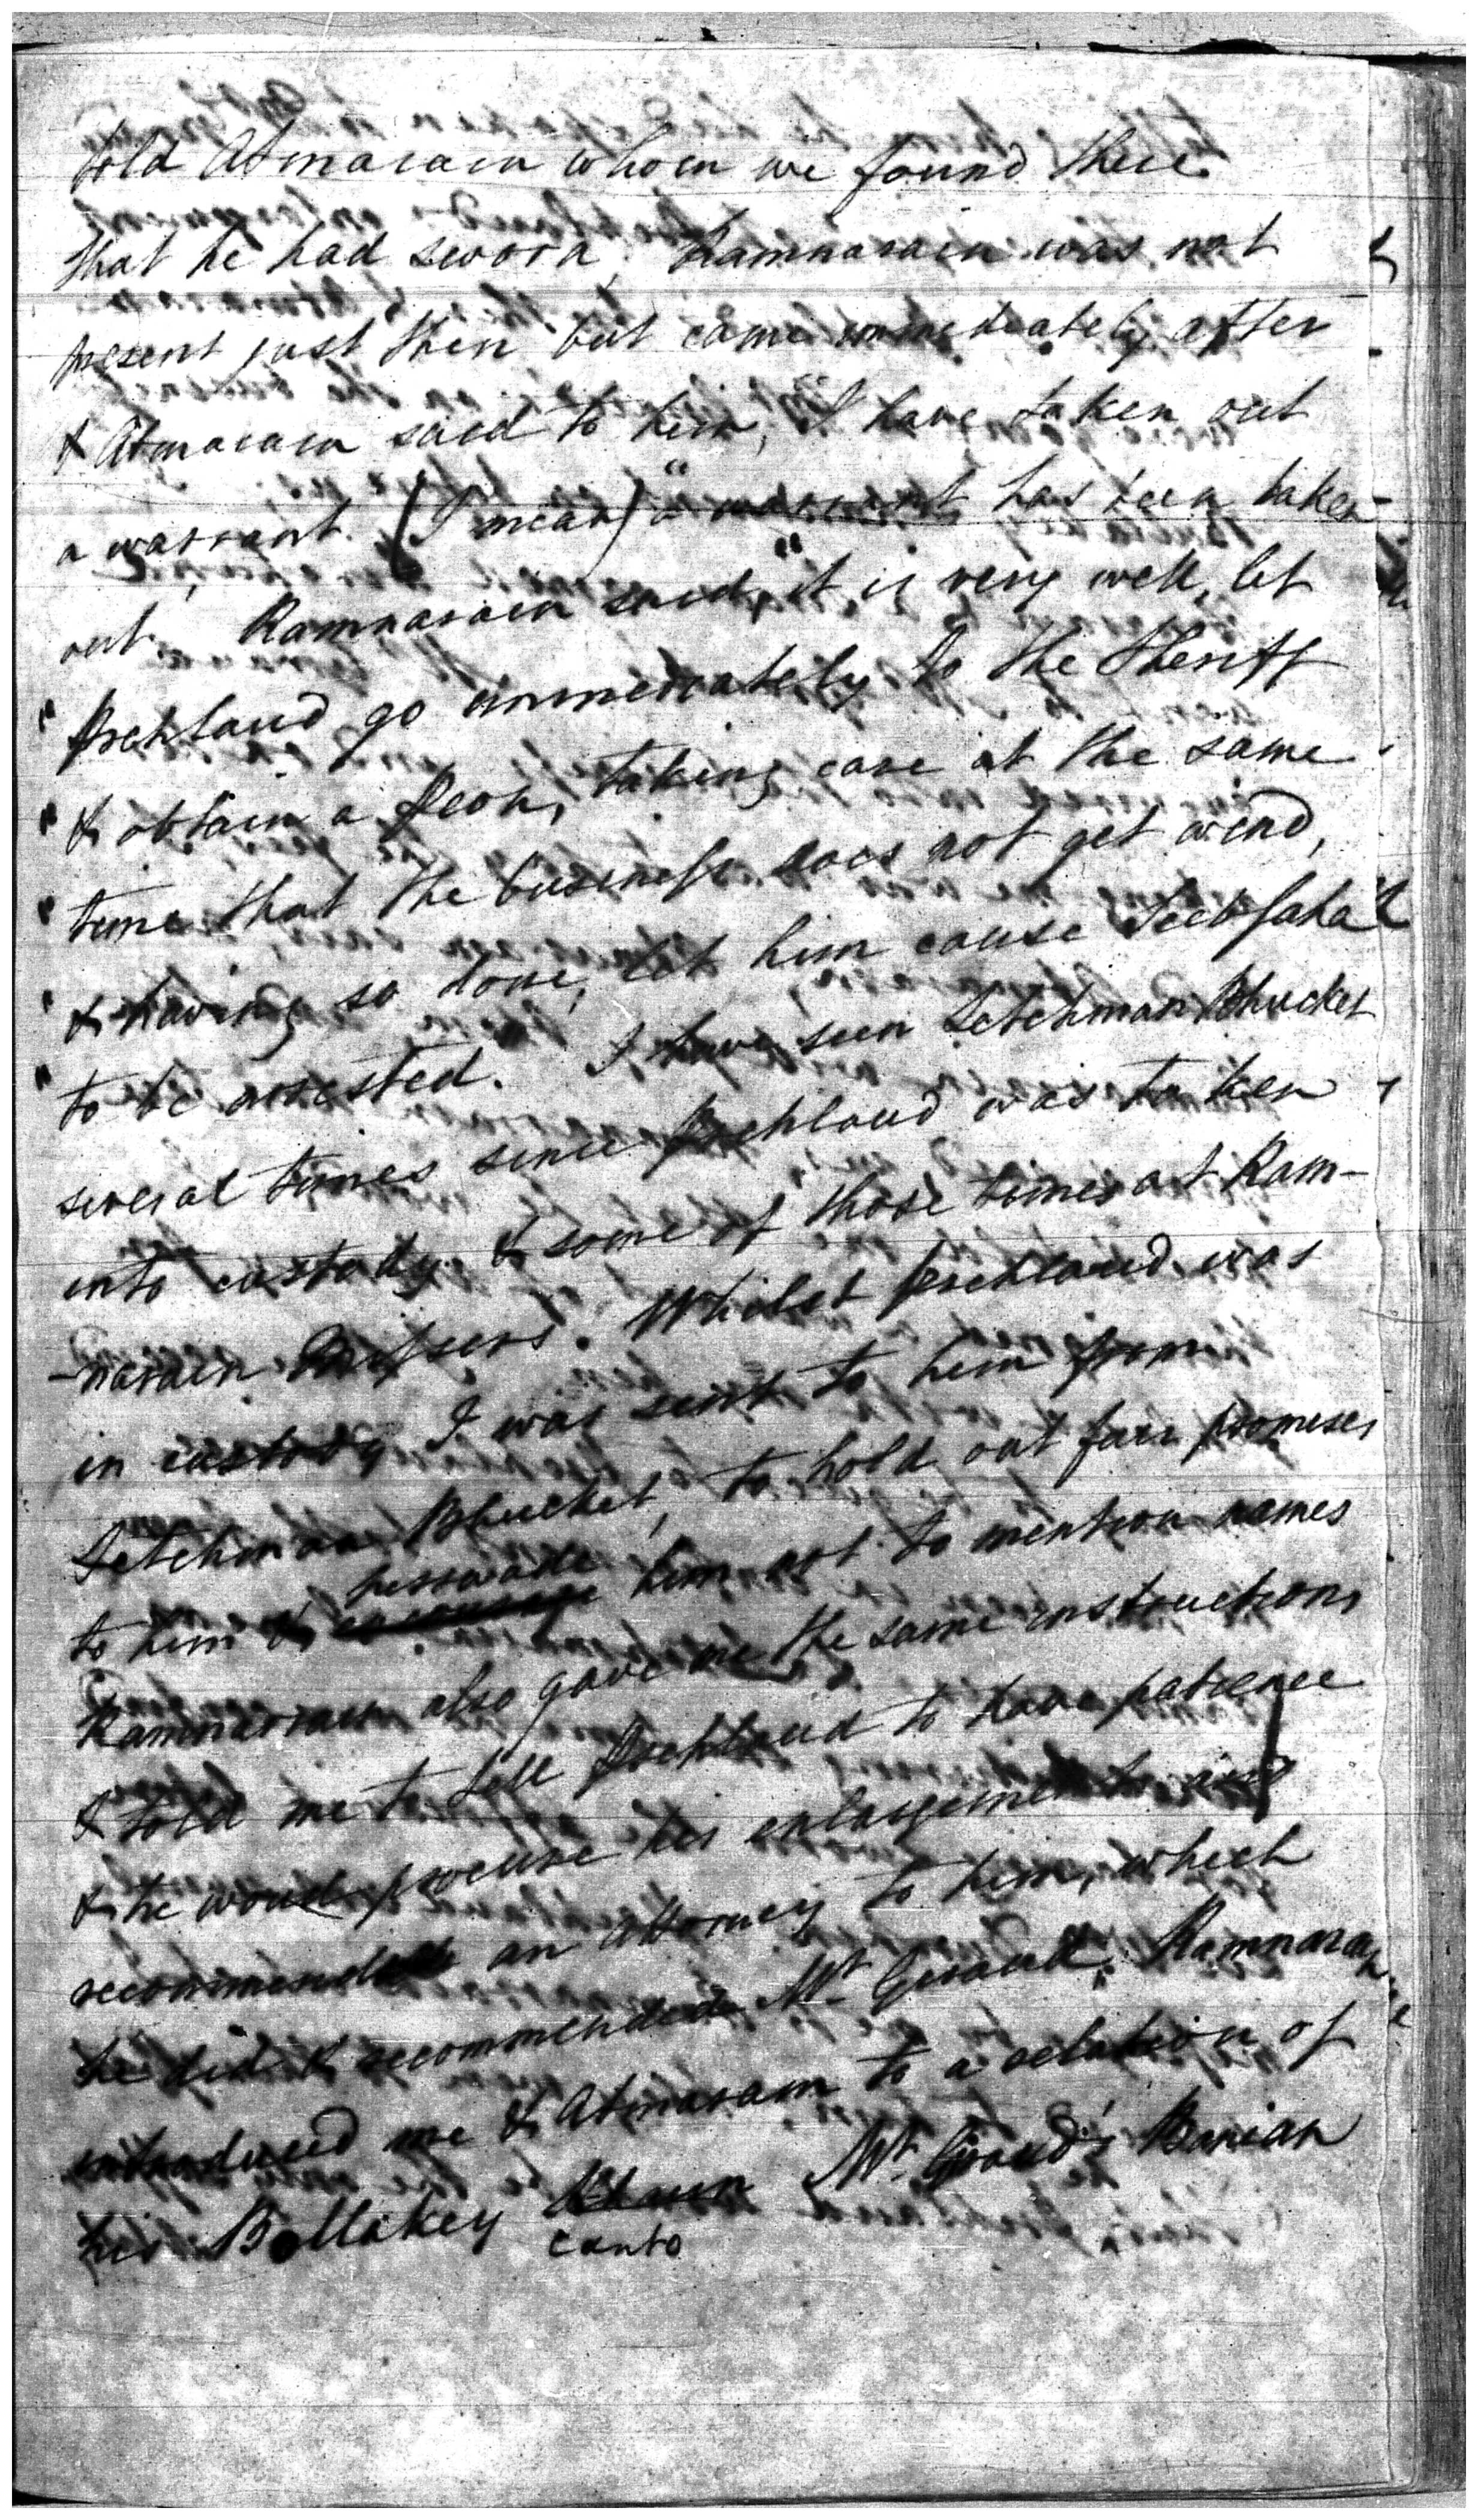 told Atmaram whom we found there
that he had sworn, Ramnarain was not
present just then but came immediately after
& Atmaram said to him, "I have taken out
a warrant. (I mean) "a warrant has been taken
out. Ramnarain said, "it is very well, let
" Prehlaud go immediately to the Sheriff
" & obtain a Peon, taking care at the same
" time that the business does not get wind,
" & having so done, let him cause
" to be arrested." I have seen Letchman Bhucket
several times since Prehlaud was taken
into custody & some of those times at Ram-
-narain Missers. Whilst Prehlaud was
in custody I was sent to him from
Letchman Bhucket, to hold out fair promises
to him & perswade him not to mention names
Ramnarain also gave me the same instructions
& told me to tell Prehlaud to have patience
& he woud procure his enlargement
recommended an attorney to him, which
he did & recommended Mr. Ramnarain
introduced me & Atmaram to a relation of
his Bollakey canto Mr. Banian